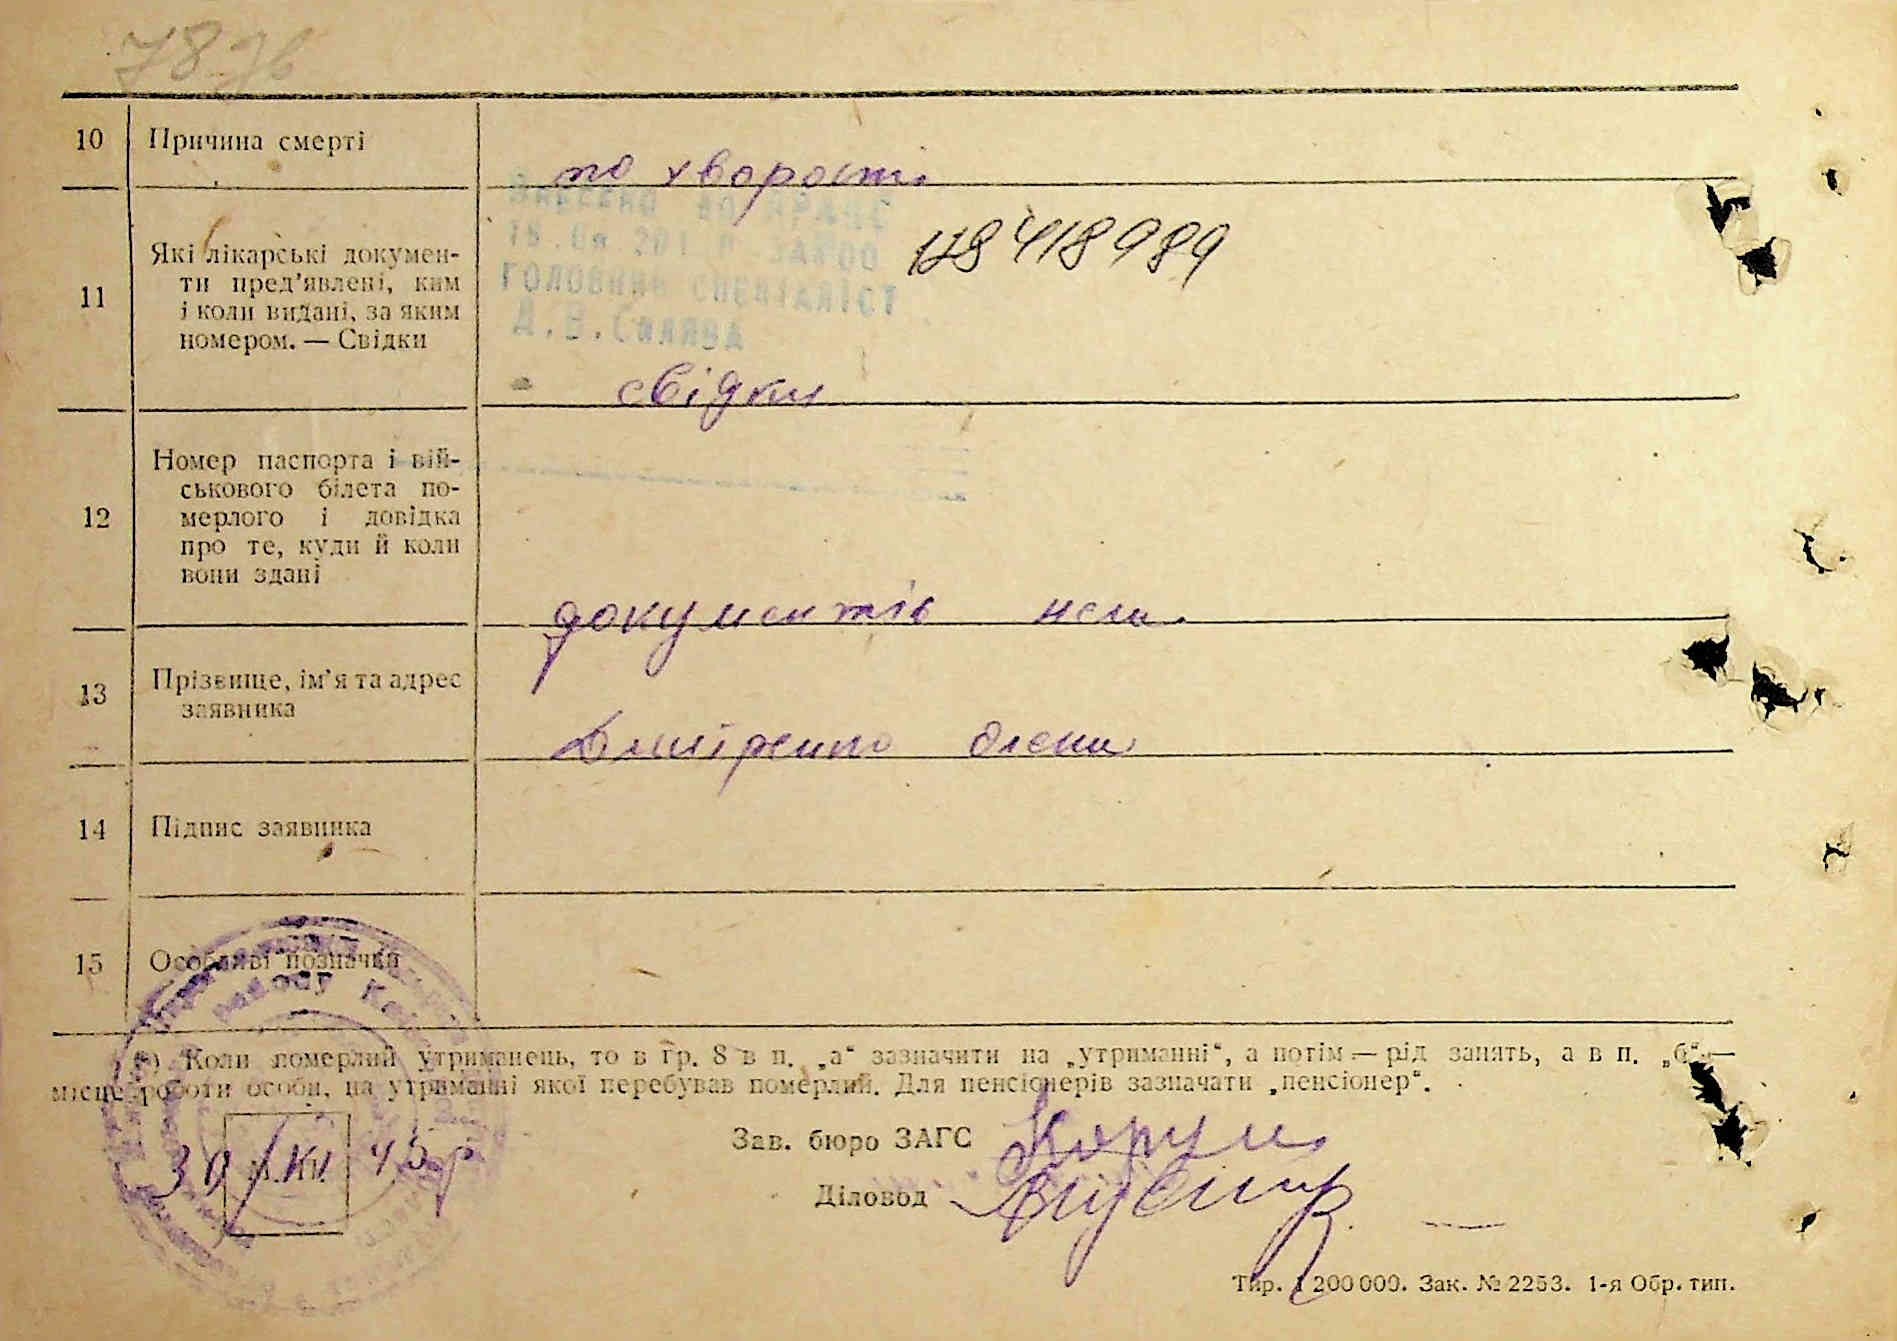 10 Причина смерті
по хворості
ВНЕСЕНО ДО ДРАЦС
ГОЛОВНИЙ СПЕЦІАЛІСТ
128418989
11 Які лікарські докумен-
ти пред'явлені, ким
і коли видані, за яким
номером. — Свідки
свідки
12 Номер паспорта і вій-
ськового білета по-
мерлого і довідка
про те, куди й коли
вони здані
документів нема
13 Прізвище, ім'я та адрес
заявника
Дмитренко Олена
14 Підпис заявника
15 Особливі позначки
*) Коли померлий утриманець, то в гр. 8 в п. „а“ зазначити на „утриманні“, а потім — рід занять, а в п. „б“ —
місце роботи особи, на утриманні якої перебував померлий. Для пенсіонерів зазначати „пенсіонер“.
Зав. бюро ЗАГС
Діловод
Тир. 1 200 000. Зак. № 2253. 1-я Обр. тип.